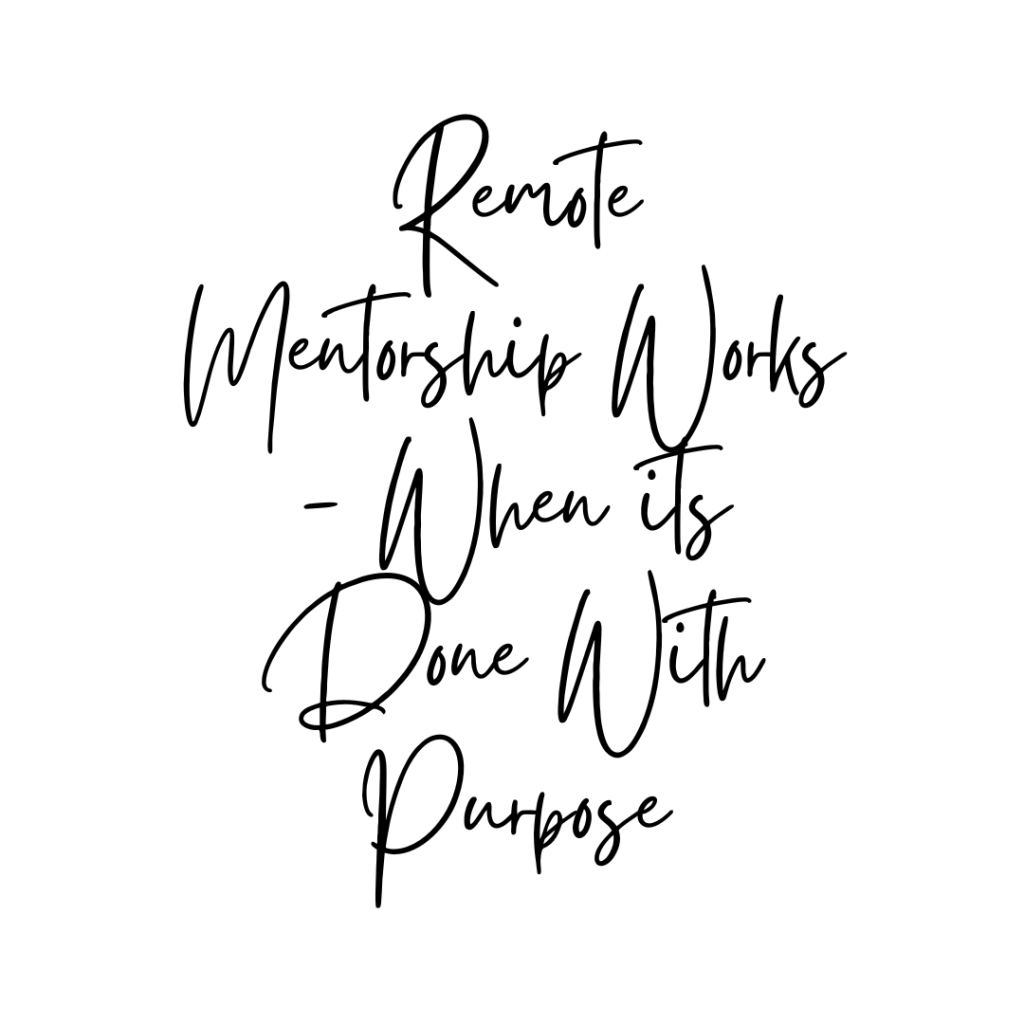 Remote
Mentorship Works
- When its
Done With
Purpose